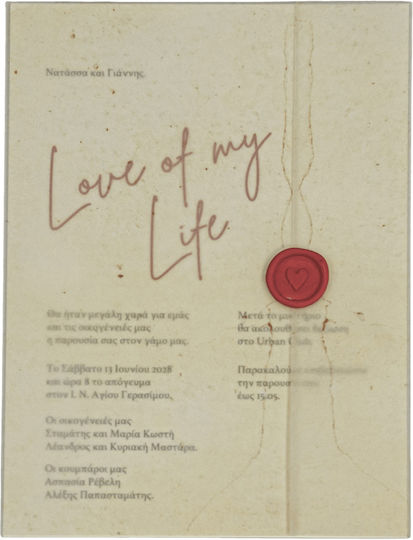 Νατάσσα και Γιάννης
Love of my
Life
Θα ήταν μεγάλη χαρά για εμάς
και τις οικογένειές μας
η παρουσία σας στον γάμο μας.
Το Σάββατο 13 Ιουνίου 2028
και ώρα 8 το απόγευμα
στον Ι. Ν. Αγίου Γερασίμου,
Οι οικογένειές μας
Σταμάτης και Μαρία Κωστή
Λέανδρος και Κυριακή Μαστάρα.
Οι κουμπάροι μας
Ασπασία Ρέβελη
Αλέξης Παπασταμάτης.
Μετά το μυστήριο
θα ακολουθήσει
στο Urban Club.
Παρακαλούμε
την παρουσία
έως 15.05.